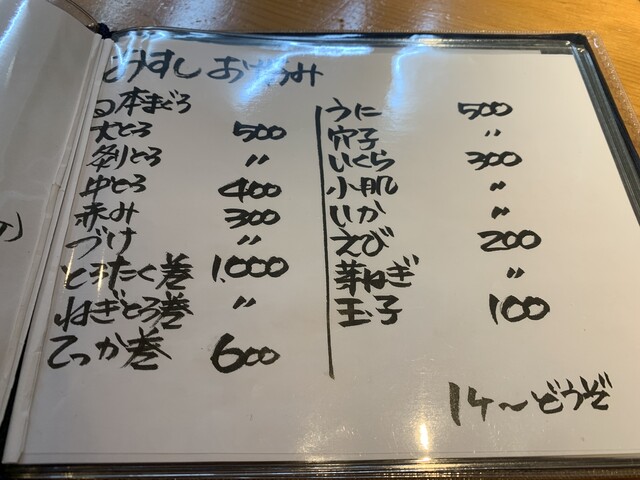 どうすし おつまみ
日本まぐろ
大とろ 500
炙りとろ 〃
中とろ 400
赤み 300
づけ 〃
とろたく巻 1,000
ねぎとろ巻 〃
てっか巻 600
うに 500
穴子 〃
いくら 300
小肌 〃
いか 〃
えび 200
芽ねぎ 〃
玉子 100
1ケ〜どうぞ
の)